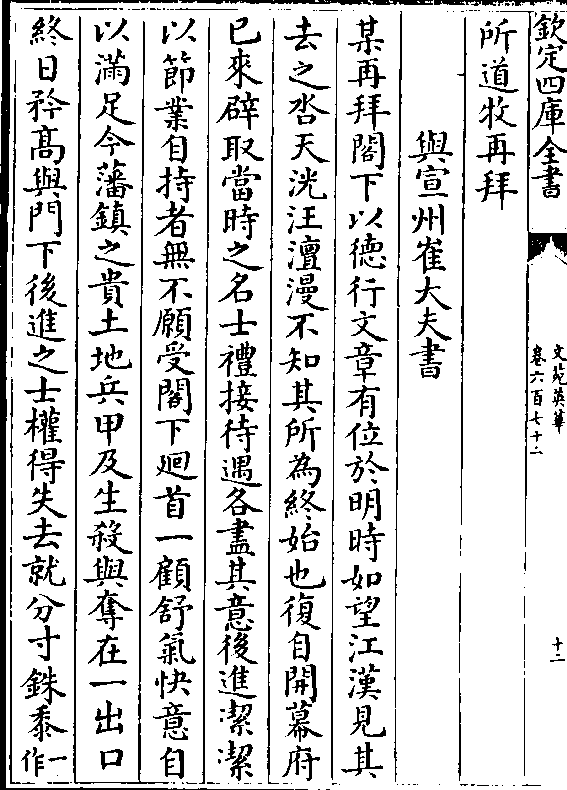 欽定四庫全書
文苑英華
卷六百七十二
十二
所道牧再拜
與宣州崔大夫書
某再拜閤下以德行文章有位於明時如望江漢見其
去之沓天洸汪澶漫不知其所為終始也復自開幕府
已來辟取當時之名士禮接待遇各盡其意後進潔潔
以節業自持者無不願受閤下廻首一顧舒氣快意自
以滿足今藩鎮之貴土地兵甲及生殺與奪在一出口
終日矜髙與門下後進之士權得失去就分寸銖黍一
作